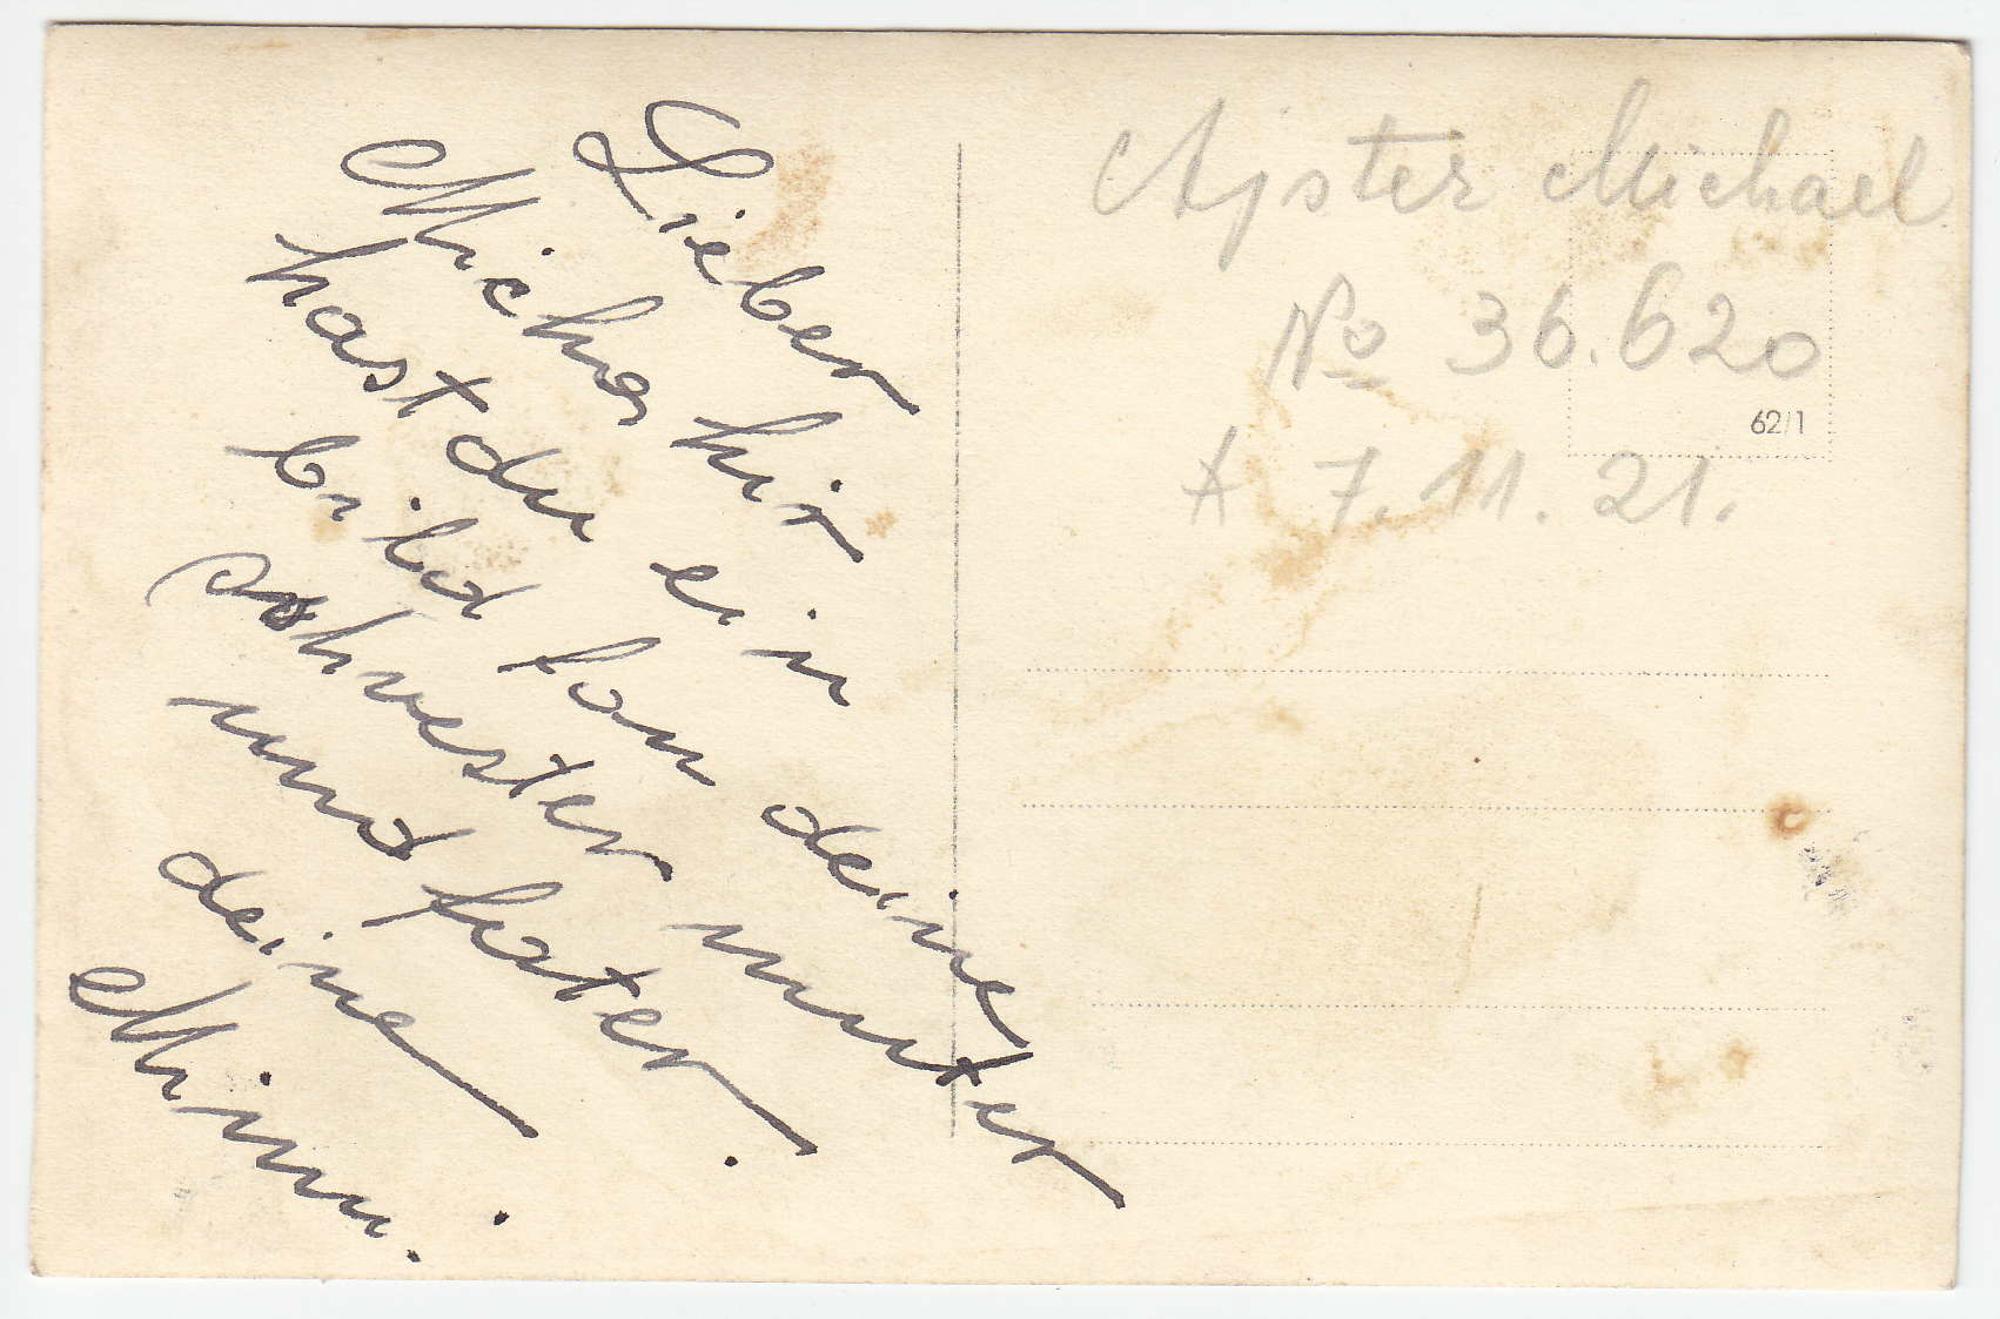 Lieber
Micha hir
hast du ein
bild fon deine
schwester muter
und fater.
deine
Mimi.
Ajster Michael
No 36.620
A 7. 11. 21.
62/1